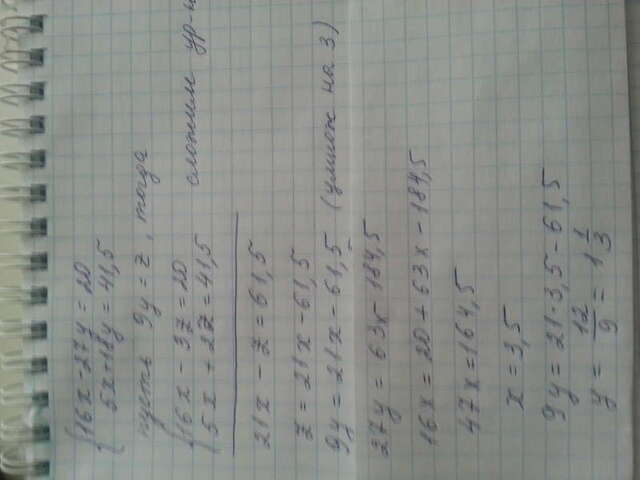 16x-27y=20
5x+18y=41,5
пусть 9y=z, тогда
16x-3z=20
5x+2z=41,5 сложим ур-
21x-z=61,5
z=21x-61,5
9y=21x-61,5 (умнож на 3)
27y=63x-184,5
16x=20+63x-184,5
47x=164,5
x=3,5
9y=21·3,5-61,5
y=12/9=1 1/3